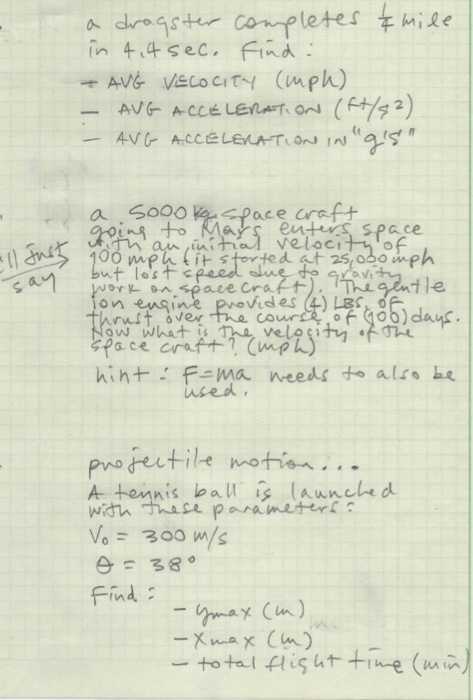 a dragster completes 1/4 mile
in 4.4 sec. Find:
- AVG VELOCITY (mph)
- AVG ACCELERATION (ft/s²)
- AVG ACCELERATION IN "g's"
a 5000 kg space craft
going to Mars enters space
with an initial velocity of
I'll just
say
100 mph (it started at 25,000 mph
but lost speed due to gravity
work on space craft). The gentle
ion engine provides (4) LBS. of
thrust over the course of (100) days.
Now what is the velocity of the
space craft? (mph)
hint: F=ma needs to also be
used.
projectile motion...
A tennis ball is launched
with these parameters:
V₀ = 300 m/s
θ = 38°
Find:
- ymax (m)
- xmax (m)
- total flight time (min)